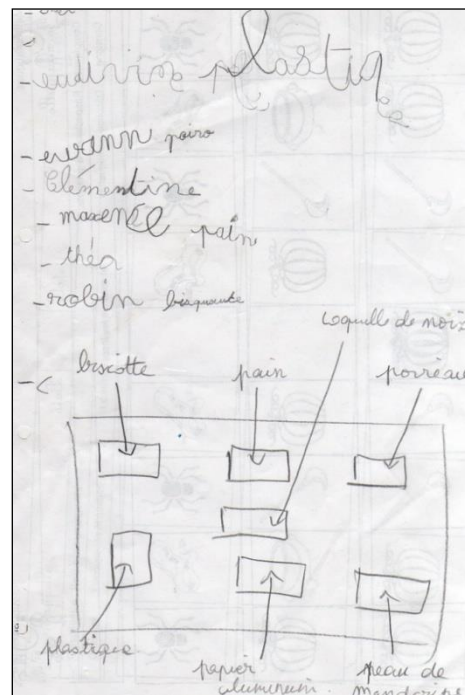 - ludivine plastiq
- erwann poiro
- Clémentine
- maxence pain
- théa
- robin bisquaute
coquille de noix
biscotte pain poireau
plastique papier aluminium peau de mandarine